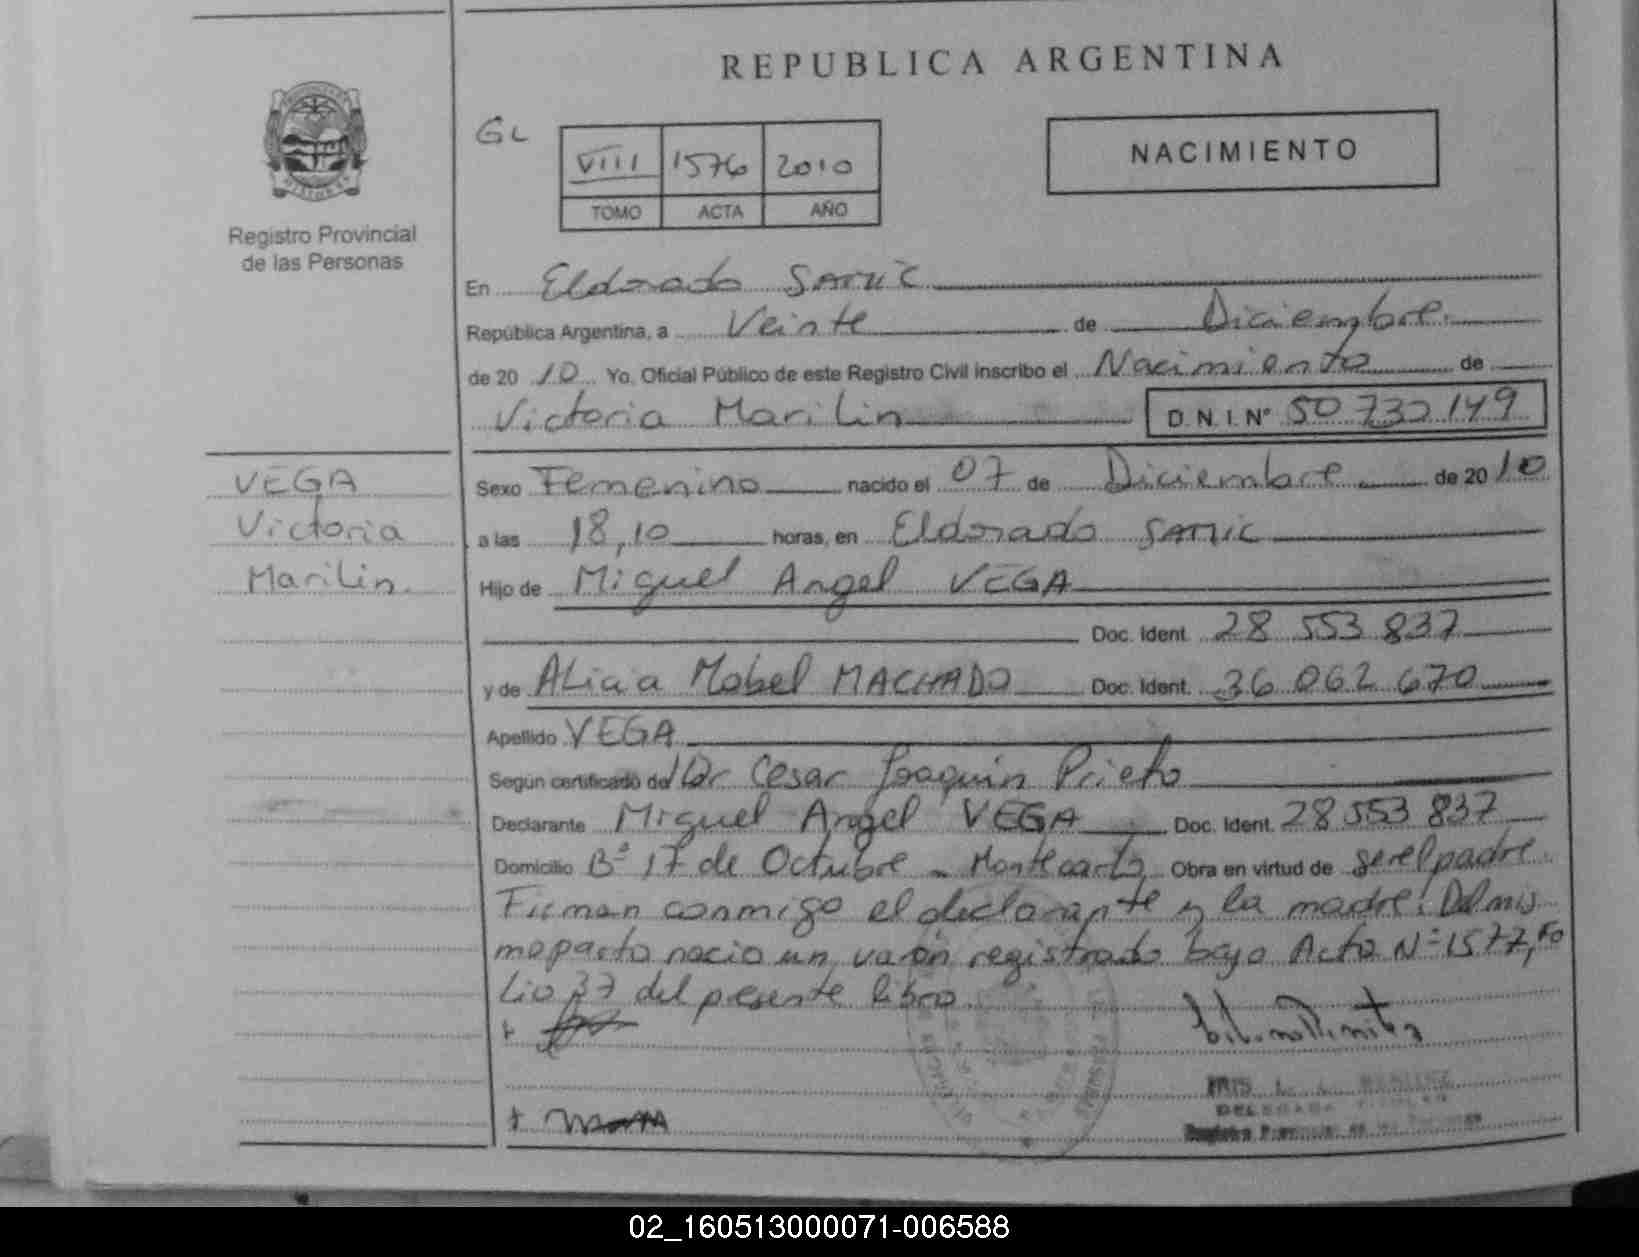 REPUBLICA ARGENTINA
GL
VIII 1576 2010
TOMO ACTA AÑO
NACIMIENTO
Registro Provincial
de las Personas
En Eldorado SAMIC
República Argentina, a Veinte de Diciembre
de 20 10 Yo, Oficial Público de este Registro Civil inscribo el Nacimiento de
Victoria Marilin D.N.I. Nº 50 732 149
VEGA
Victoria
Marilin.
Sexo Femenino nacido el 07 de Diciembre de 20 10
a las 18,10 horas, en Eldorado SAMIC
Hijo de Miguel Angel VEGA
Doc. Ident. 28 553 837
y de Alicia Mabel MACHADO Doc. Ident. 36 062 670
Apellido VEGA
Según certificado del Dr Cesar Joaquin Prieto
Declarante Miguel Angel VEGA Doc. Ident. 28 553 837
Domicilio Bº 17 de Octubre - Montecarlo Obra en virtud de ser el padre.
Firman conmigo el declarante y la madre. Del mis
mo parto nacio un varón registrado bajo Acta Nº 1577, Fo
lio 37 del presente libro
DELEGADA TITULAR
Registro Provincial de las Personas
02_160513000071-006588